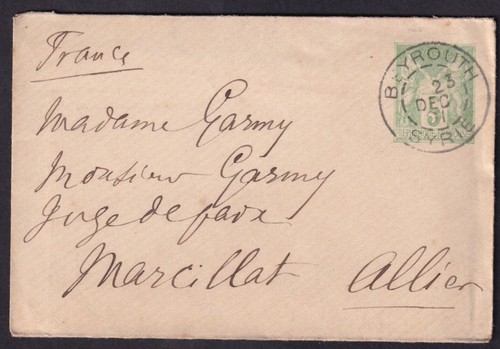 France
BEYROUTH
23
DEC
SYRIE
5
Madame Garmy
Monsieur Garmy
Juge de paix
Marcillat Allier